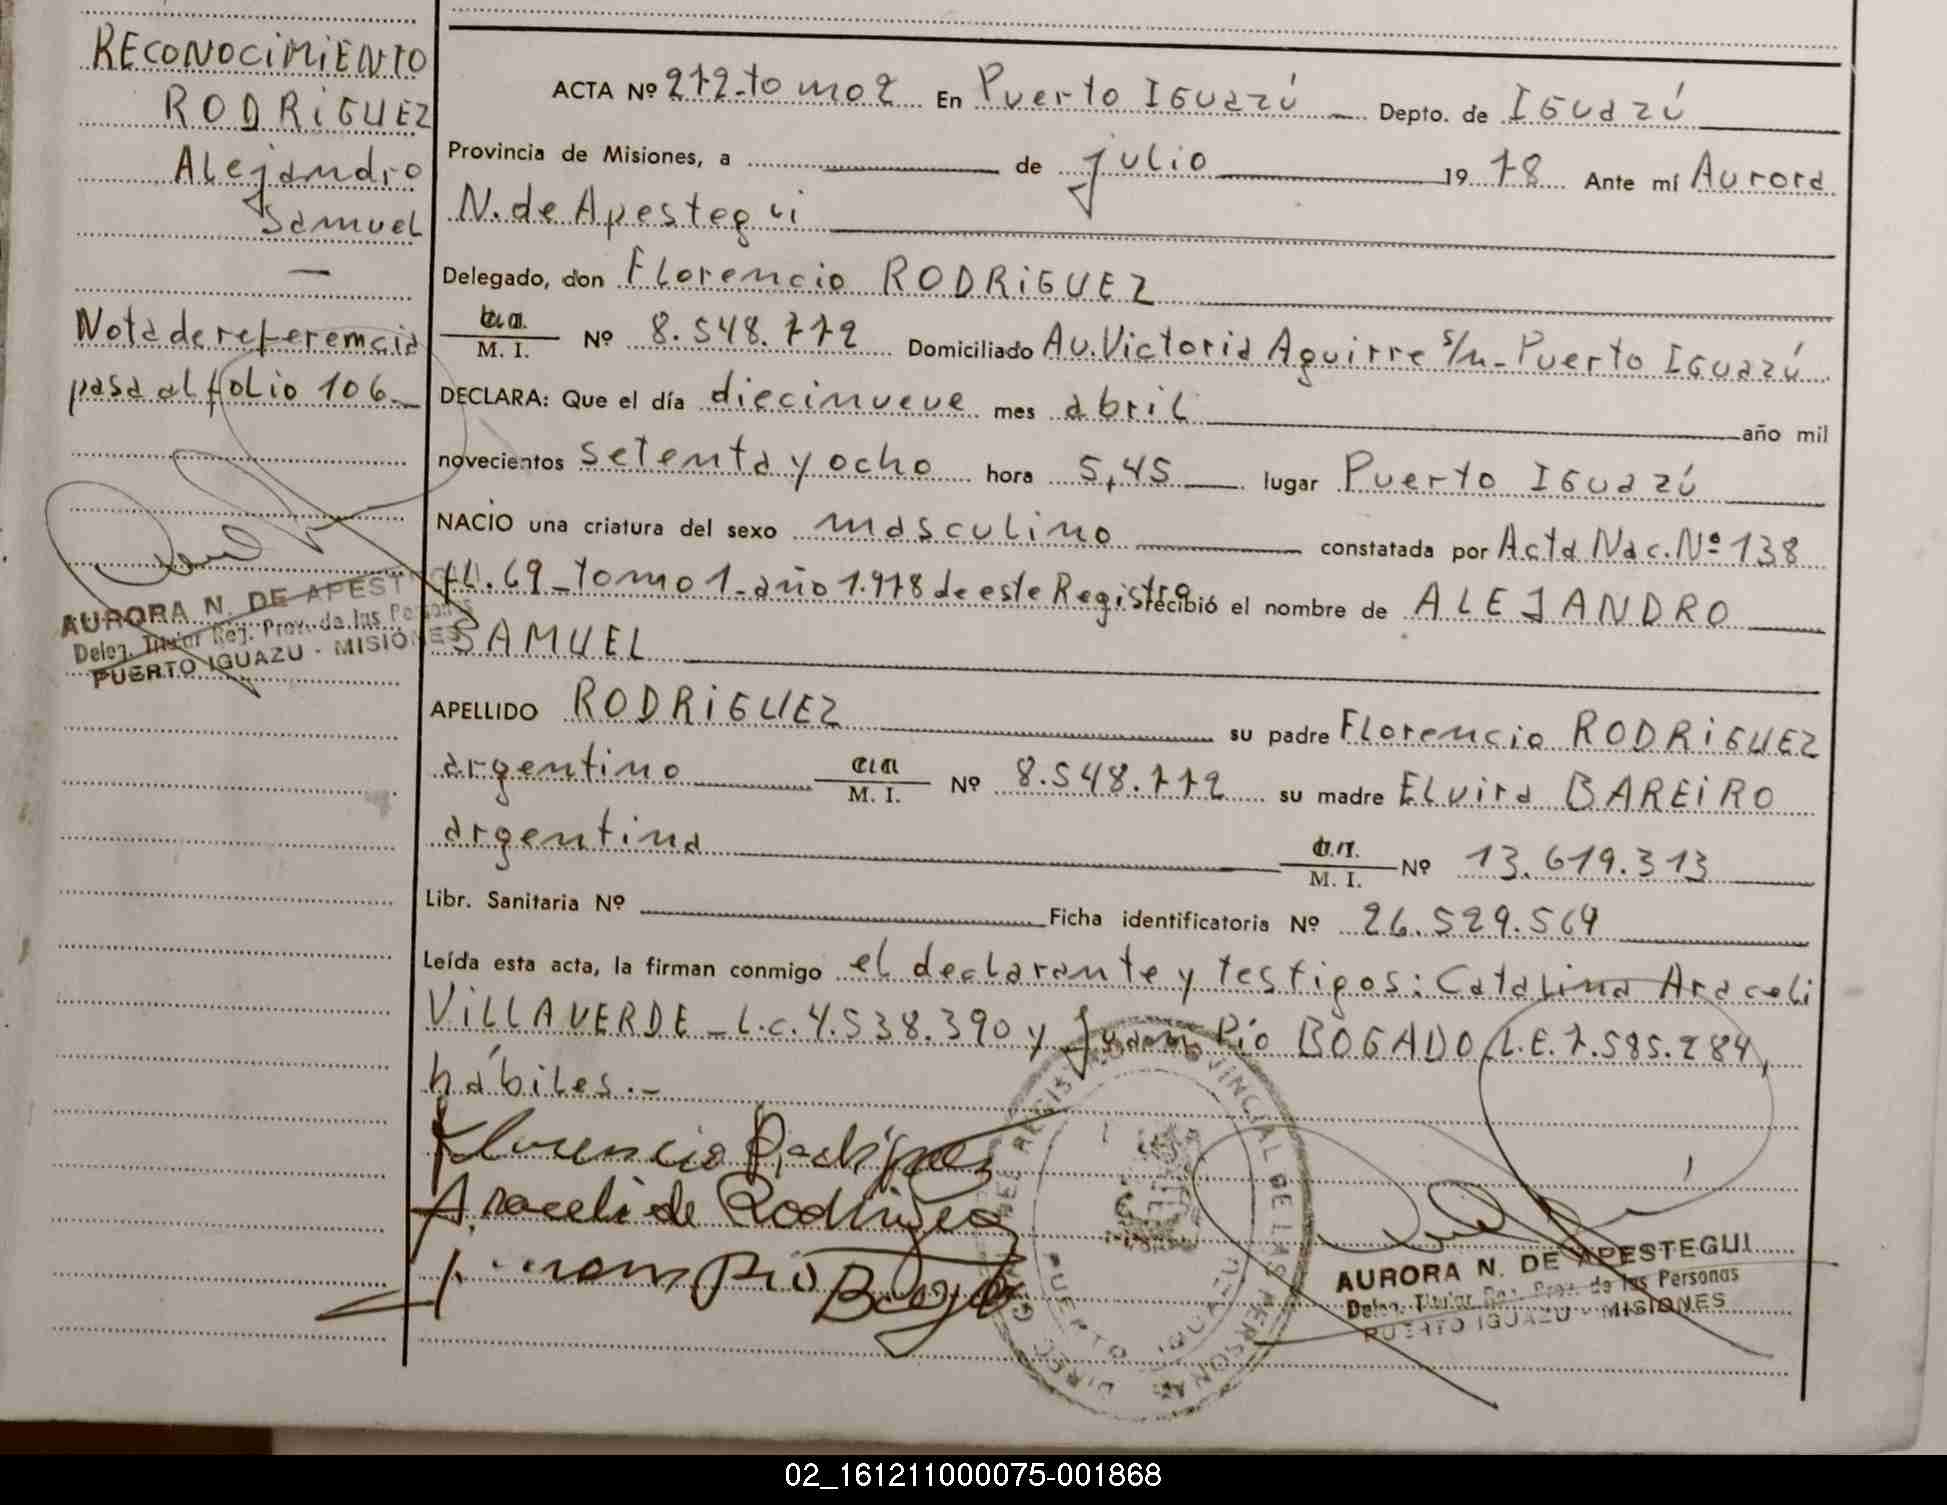 RECONOCIMIENTO
RODRIGUEZ
Alejandro
Samuel
—
Nota de referencia
pasa al folio 106._
AURORA N. DE APESTEGUI
Deleg. Titular Reg. Prov. de las Personas
PUERTO IGUAZU - MISIONES
ACTA Nº 272-tomo 2 En Puerto Iguazú Depto. de Iguazú
Provincia de Misiones, a de julio 19 78 Ante mí Aurora
N. de Apestegui
Delegado, don Florencio RODRIGUEZ
M. I. Nº 8.548.772 Domiciliado Av. Victoria Aguirre s/n - Puerto Iguazú
DECLARA: Que el día diecinueve mes abril año mil
novecientos setenta y ocho hora 5,45 lugar Puerto Iguazú
NACIO una criatura del sexo masculino constatada por Acta Nac. Nº 138
fl. 69 - tomo 1 - año 1.978 de este Registro recibió el nombre de ALEJANDRO
SAMUEL
APELLIDO RODRIGUEZ su padre Florencio RODRIGUEZ
argentino M. I. Nº 8.548.772 su madre Elvira BAREIRO
argentina M. I. Nº 13.619.313
Libr. Sanitaria Nº Ficha identificatoria Nº 26.529.564
Leída esta acta, la firman conmigo el declarante y testigos: Catalina Araceli
VILLAVERDE - L.C. 4.538.390 y Juan Pío BOGADO L.E. 7.585.284,
hábiles.-
Florencio Rodriguez
Araceli de Rodriguez
Juan Pio Bogado
DIREC. GRAL. DEL REGISTRO PROVINCIAL DE LAS PERSONAS
PUERTO IGUAZU
AURORA N. DE APESTEGUI
Deleg. Titular Reg. Prov. de las Personas
PUERTO IGUAZU - MISIONES
02_161211000075-001868